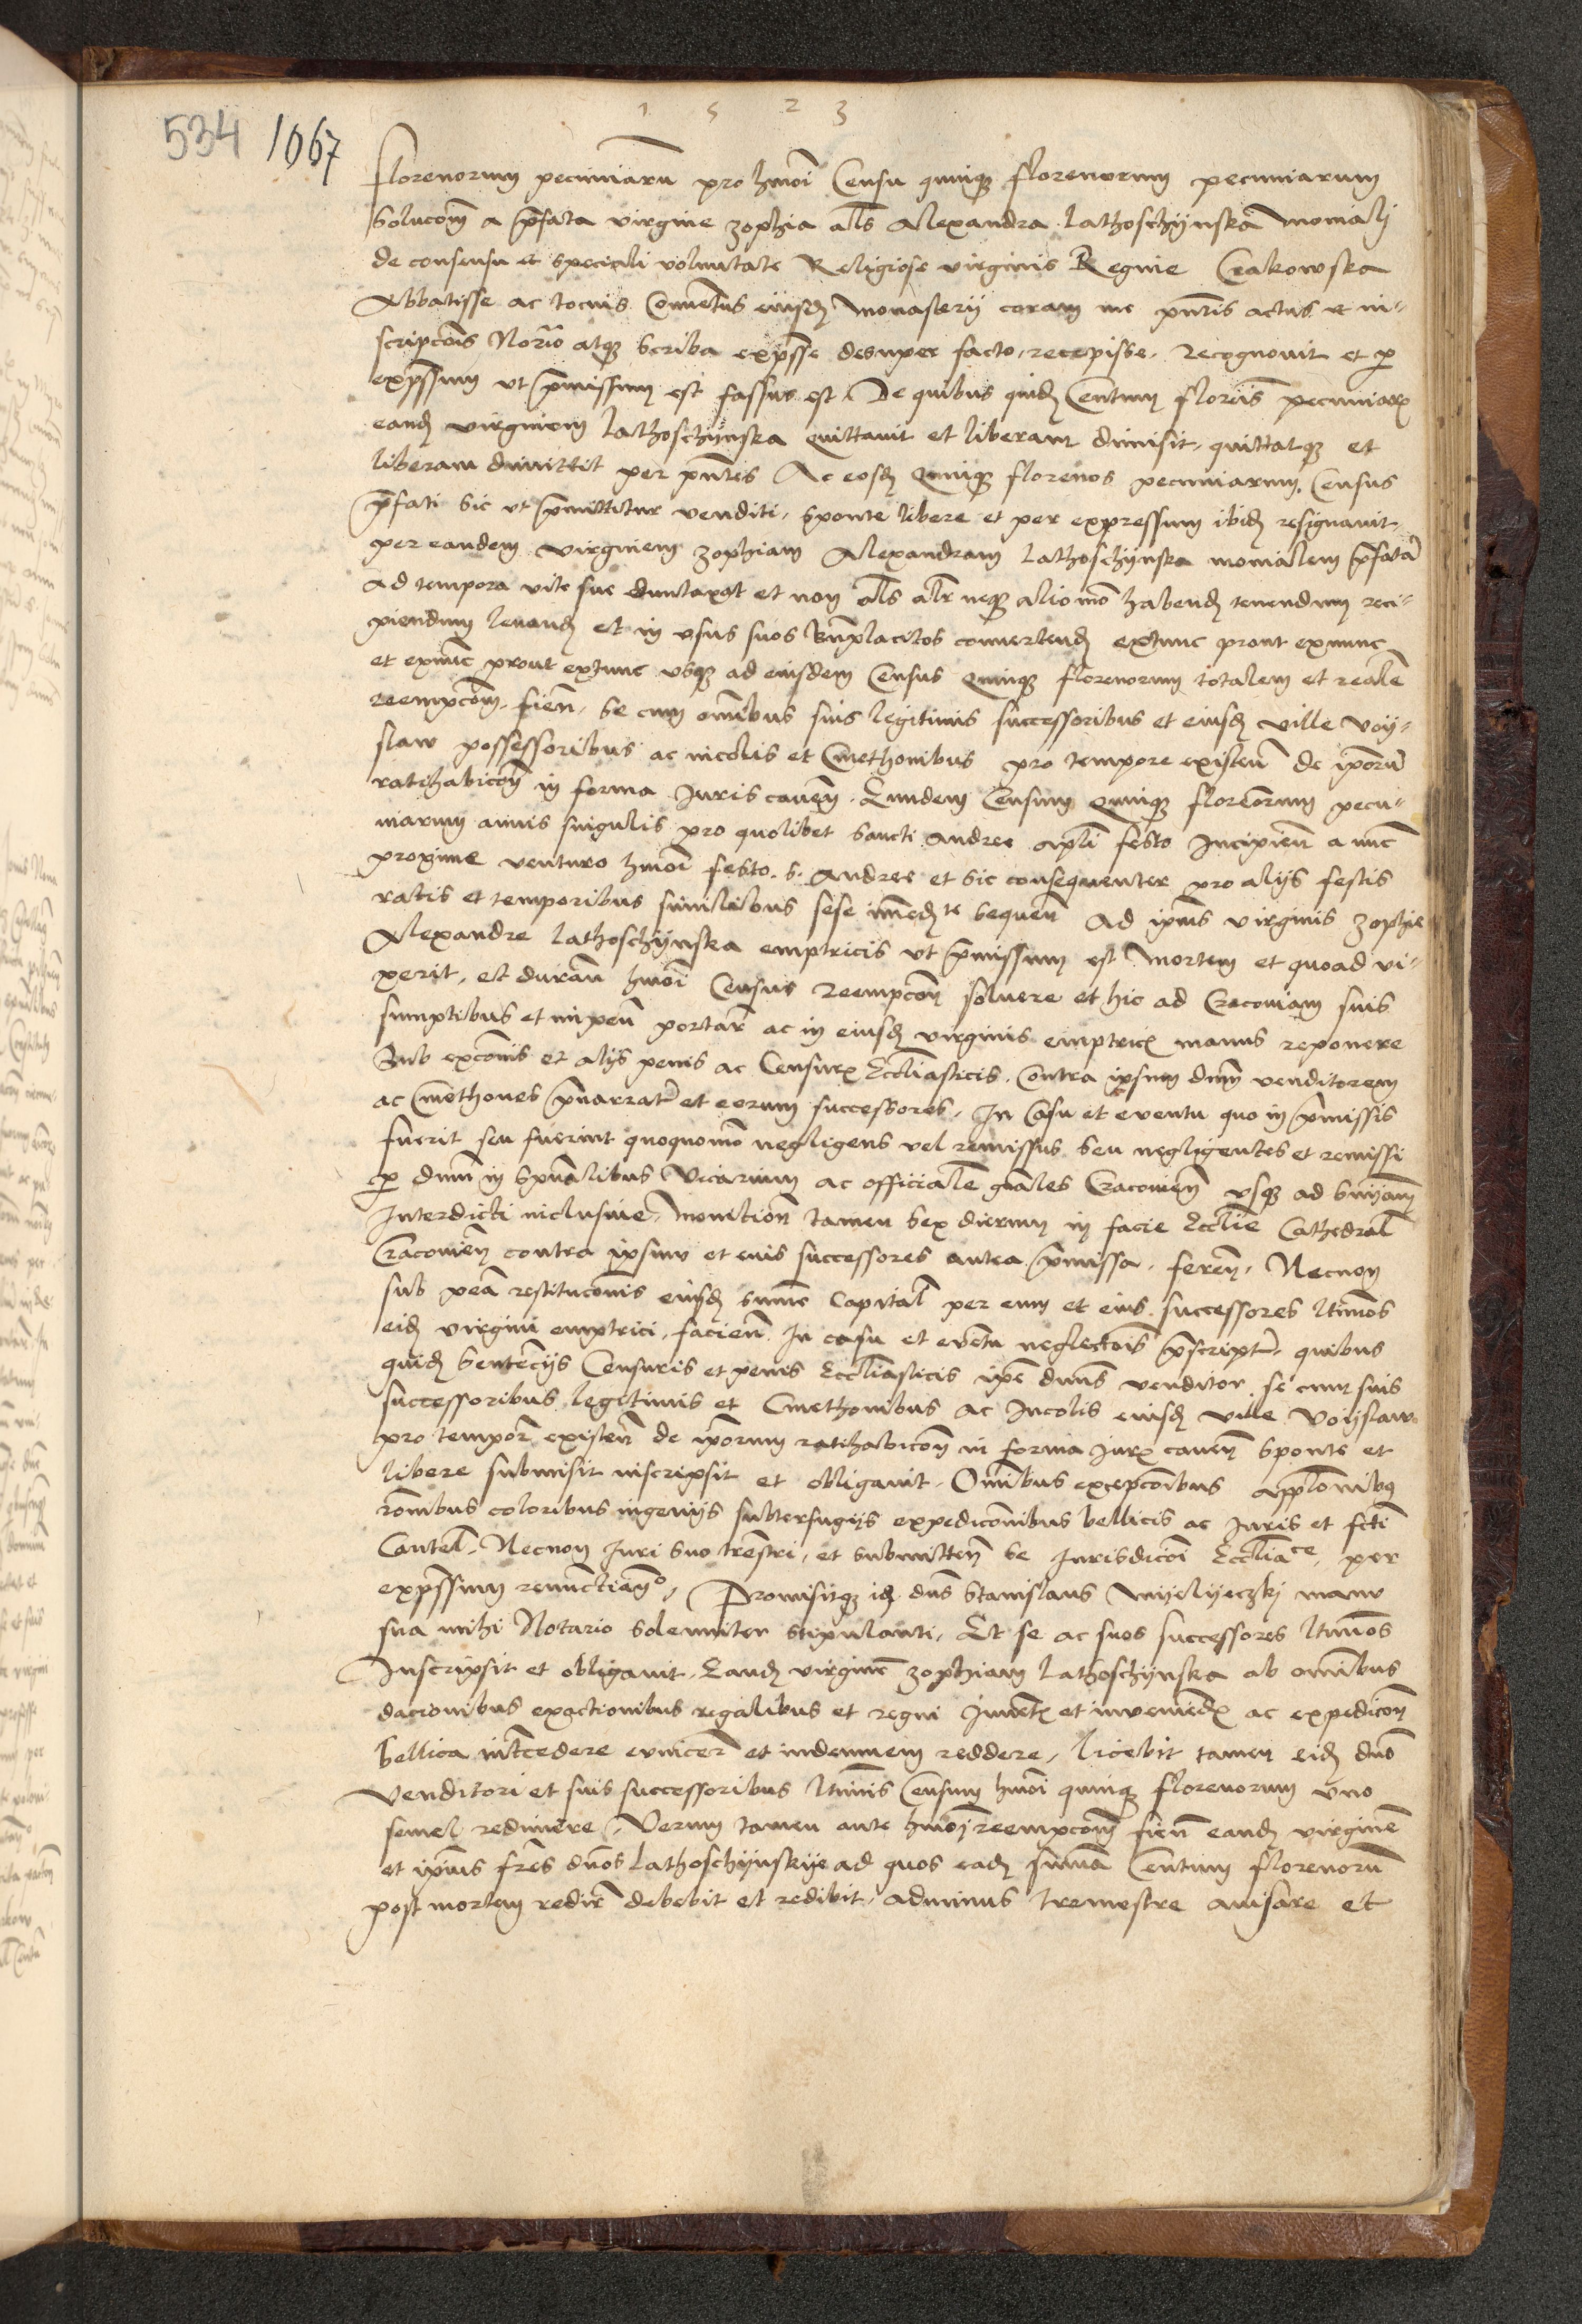 1 5 2 3
534 1067
Florenorum pecuniarū pro hmōi Censu quinq₃ florenorum pecuniarum
Solucōem a p̄fata virgine zophia al̄s Alexandra Lathoschijnska moniali
de consensu et speciali voluntate Religiose virginis Regine Crakowska
Abbatisse ac tocius Conuētus eiusd₃ monasterij coram me pn̄tis actus et in⸗
scripcōis No͞rio atq₃ Scriba exp̄sse desuper facto, recepisse, recognouit et p
exp̄ssum vt p̄missum est fassus est. De quibus quid₃ Centum floreīs pecuniar₃
eand₃ virginem Lathoschijnska quittauit et liberam dimisit, quittatq₃ et
liberam dimittit per pn̄tes Ac eosd₃ quinq₃ florenos pecuniarum Census
p̄fati sic vt p̄mittitur venditi, sponte libere et per expressum ibid₃ resignauit
per eandem virginem zophiam Alexandram Lathoschijnska monialem p̄fatā
ad tempora vite sue duntaxat et non al̄s al̄r neq₃ alio mō habend₃ tenendum reci⸗
piendum leuand₃ et in vsus suos bn̄placitos conuertend₃ extunc prout exnunc
et exnunc prout extunc vsq₃ ad eiusdem Census quinq₃ florenorum totalem et realē
reempcōem, fien̄, Se cum om̄ibus suis legitimis successoribus et eiusd₃ ville Voij⸗
slaw possessoribus ac incolis et Cmethonibus pro tempore existeñ de ip̄orū
ratihabicōe in forma Iuris caueñ. Eundem Censum quinq₃ florēorum pecu⸗
niarum annis singulis pro quolibet Sancti Andree apl̄i festo Incipieñ a nūc
proxime venturo hmōi festo S. Andree et sic consequenter pro alijs festis
ratis et temporibus similibus sese īmed₃te sequeñ Ad ip̄ius virginis zophie
Alexandre Lathoschijnska emptricis vt p̄missum est mortem et quoad vi⸗
xerit, et durañ hmōi Census Reempcōe soluere et hic ad Cracouiam suis
sumptibus et impeñ portar̄ ac in eiusd₃ virginis emptric₃ manus reponere
Sub excōnis et alijs penis ac Censur₃ Eccl̄iasticis. Contra ipsum dn̄m venditorem
ac Cmethones p̄narrat̄ et eorum successores, In Casu et euentu quo in p̄missis
fuerit seu fuerint quoquomō negligens vel remissus seu negligentes et remissi
p dn̄m in Spūalibus Vicarium ac officialē gn̄ales Cracouieñ vsq₃ ad Sn̄iam
Interdicti inclusiue, monitioñ tamen sex dierum in facie Eccl̄ie Cathedral̄
Cracouieñ contra ipsum et eius successores antea p̄missa, fereñ, Necnon
sub pea restitucōnis eiusd₃ sum̄e Capital̄ per eum et eius successores l̄timos
eid₃ virgini emptrici, facieñ In casu et euētu neglectōis p̄script̄, quibus
quid₃ Sentencijs Censuris et penis Eccl̄iasticis ip̄e dn̄us venditor se cum suis
successoribus legitimis et Cmethonibus ac Incolis eiusd₃ ville Voijslaw
pro tempor̄ existeñ de ip̄orum ratihabicōe in forma Iur₃ caueñ sponte et
libere submisit inscripsit et obligauit. Om̄ibus excepcōibus appl̄onibus
rōnibus coloribus ingenijs subterfugijs expedicōnibus bellicis ac Iuris et fc̄ti
Cautel̄, Necnon Iuri suo trēstri, et submitteñ se Iurisdicōi Eccl̄iace, per
exp̄ssum renunctiando, Promisitq₃ id₃ dn̄s Stanislaus Mijelijeczkj manu
sua mihi Notario solenniter stipulanti, Et se ac suos successores l̄timos
Inscripsit et obligauit. Eand₃ virginē zophiam Lathoschijnska ab om̄ibus
dacionibus exactionibus regalibus et regni Inuent₃ et inueniend₃ ac expedicōe
bellica intercedere euincer̄ et indemnem reddere, licebit tamen eid₃ dn̄o
Venditori et suis successoribus l̄timis Censum hmōi quinq₃ florenorum vno
semel redimere, Verum tamen ante hmōi reempcōem fieñ eand₃ virginē
et ip̄ius fr̄es dn̄os Lathoschijnskije ad quos ead₃ sum̄a Centum florenorū
post mortem redir̄ debebit et redibit, adminus tremestre auisare et